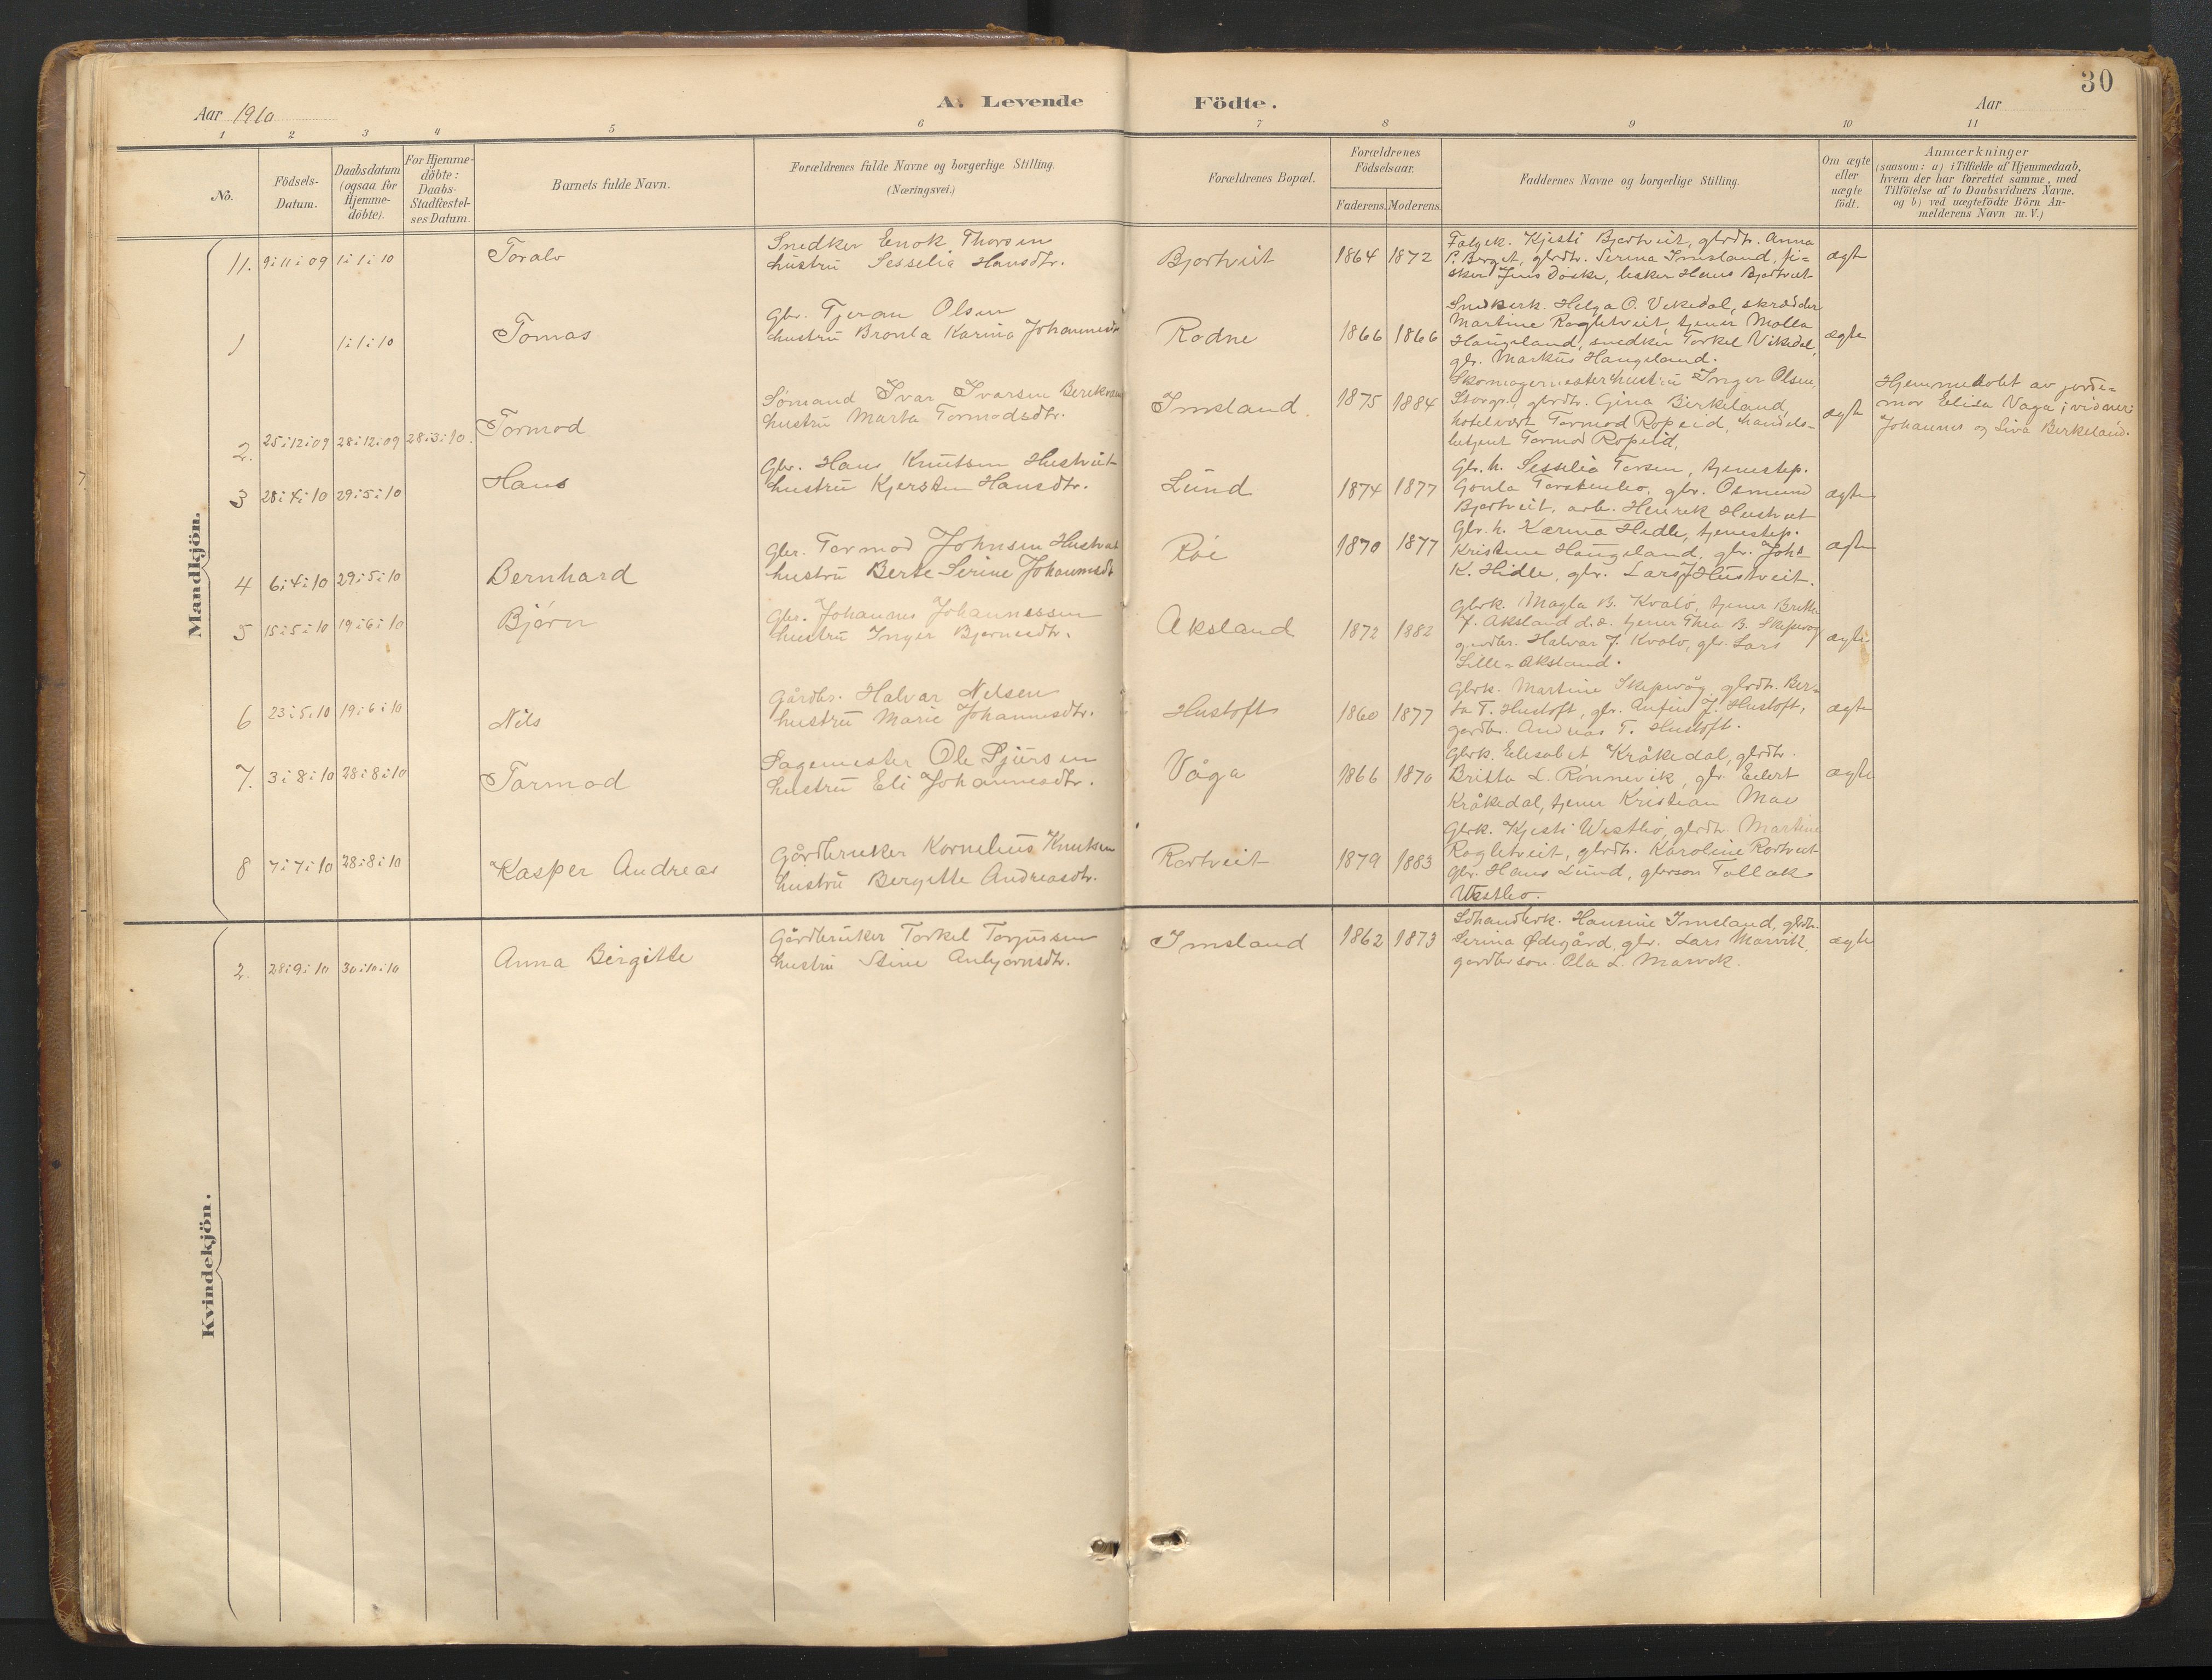 30
Aar 1910
A. Levende Födte.
Aar
1 2 3 4 5 6 7 8 9 10 11
No.
Födsels-
Datum.
Daabsdatum
(ogsaa for
Hjemme-
döbte).
For Hjemme-
döbte:
Daabs-
Stadfæstel-
ses Datum.
Barnets fulde Navn.
Forældrenes fulde Navne og borgerlige Stilling.
(Næringsvei.)
Forældrenes Bopæl.
Forældrenes
Födselsaar.
Faderens. Moderens.
Faddernes Navne og borgerlige Stilling.
Om ægte
eller
uægte
födt.
Anmærkninger
(saasom: a) i Tilfælde af Hjemmedaab,
hvem der har forrettet samme, med
Tilföielse af to Daabsvidners Navne.
og b) ved uægtefödte Börn An-
melderens Navn m. V.)
Mandkjön.
11. 9:11:09 1:1:10
Toralv
Snedker Enok Thorsen
hustru Sesselia Hansdtr.
Bjortveit
1864 1872
Kjesti Bjortveit, gbrdtr. Anna
P. Berget, gbrdtr. Serina Imsland, fi-
sker Jens Döske, Hans Bjortveit
ægt
1 1:1:10
Tomas
Gbr. Tjeran Olsen
hustru Karina Johannesdtr
Rodne
1866 1866
Helga O. Vikedal, skrædder
Martine Ragletveit, tjener Malla
Haugeland, snedker Torkel Vikedal,
gbr. Markus Haugeland.
ægte
2. 25:12:09 28:12:09 28:3:10.
Tormod
Sömand Ivar Ivarsen
hustru Marta Tormodsdtr.
Imsland.
1875 1884
Skomagermesterhustru Inger Olsen,
Storgr., gbrdtr. Gina Birkeland,
hotelvert Tormod Ropeid, handels-
betjent Tormod Ropeid.
ægt
Hjemmedøbt av jorde-
mor Elisa Vaga; vidner:
Johannes og Siva Birkeland.
3 28:4:10 29:5:10
Hans
Gbr. Hans Knutsen Hustveit
hustru Kjersten Hansdtr.
Lund
1874 1877
Gbr. h. Sesselia Torsen, tjenestep.
Gonla gbr. Osmund
Bjortveit, arb. Henrik Hustveit
ægte
4 6:4:10 29:5:10
Bernhard
Gbr. Tormod Johnsen Hustveit
hustru Berte Serine Johannesdt
Röe
1870 1877
Gbr. h. Karina Hidle, tjenestep.
Kristine Haugeland, gbr. Joh.
K. Hidle, gbr. Lars J Hustveit.
ægte
5 15:5:10 19:6:10
Björn
Gbr. Johannes Johannessen
hustru Inger Bjørnesdtr.
Aksland
1872 1882
Gbrk. Magla B. Kvalö, tjener Brithe
J. Aksland d.æ. tjener Thea B. Skipevåg
gardbr. Halvar J. Kvalö, gbr. Lars
Lille-Aksland.
ægte
6 23:5:10 19:6:10
Nils
Gårdbr. Halvar Nelsen
hustru Marie Johannesdtr.
Hustoft
1860 1877
Gbrk. Martine Skipevåg, gbrdtr. Ber-
ta T. Hustoft, gbr. Anfin J. Hustoft,
gardbr. Andreas T. Hustoft.
ægte
7. 3:8:10 28:8:10
Tormod
Sagemester Ole Sjursen
hustru Eli Johannesdtr.
Våga
1866 1870
Gbrk. Elesabet Kråkedal, gbrdtr.
Britta L. Rönnevik, gbr. Eilert
Kråkedal, tjener Kristian Mæ
ægte
8 7:7:10 28:8:10
Kasper Andreas
Gårdbruker Kornelius Knutsen
hustru Bergitte Andreasdtr.
Rortveit
1879 1883
Gbrk. Kjesti Westbö, gbrdtr. Martine
Ragletveit, gbrdtr. Karoline Rortveit
gbr. Hans Lund, gbrson Tollak
Westbö.
Kvindekjön.
2. 28:9:10 30:10:10
Anna Birgitte
Gårdbruker Torkel Torjussen
hustru Stine Anbjørnsdtr.
Imsland
1862 1873
Hansine Imsland, gbrdtr.
Serina Ødegård, gbr. Lars Marvik,
gardbrson Ola L. Marvik.
ægte